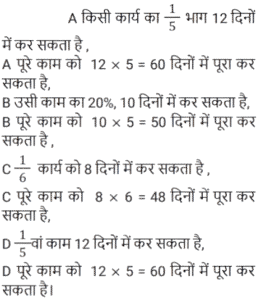 A किसी कार्य का 1/5 भाग 12 दिनों
में कर सकता है ,
A पूरे काम को 12 × 5 = 60 दिनों में पूरा कर
सकता है,
B उसी काम का 20%, 10 दिनों में कर सकता है,
B पूरे काम को 10 × 5 = 50 दिनों में पूरा कर
सकता है ,
C 1/6 कार्य को 8 दिनों में कर सकता है ,
C पूरे काम को 8 × 6 = 48 दिनों में पूरा कर
सकता है,
D 1/5 वां काम 12 दिनों में कर सकता है,
D पूरे काम को 12 × 5 = 60 दिनों में पूरा कर
सकता है।